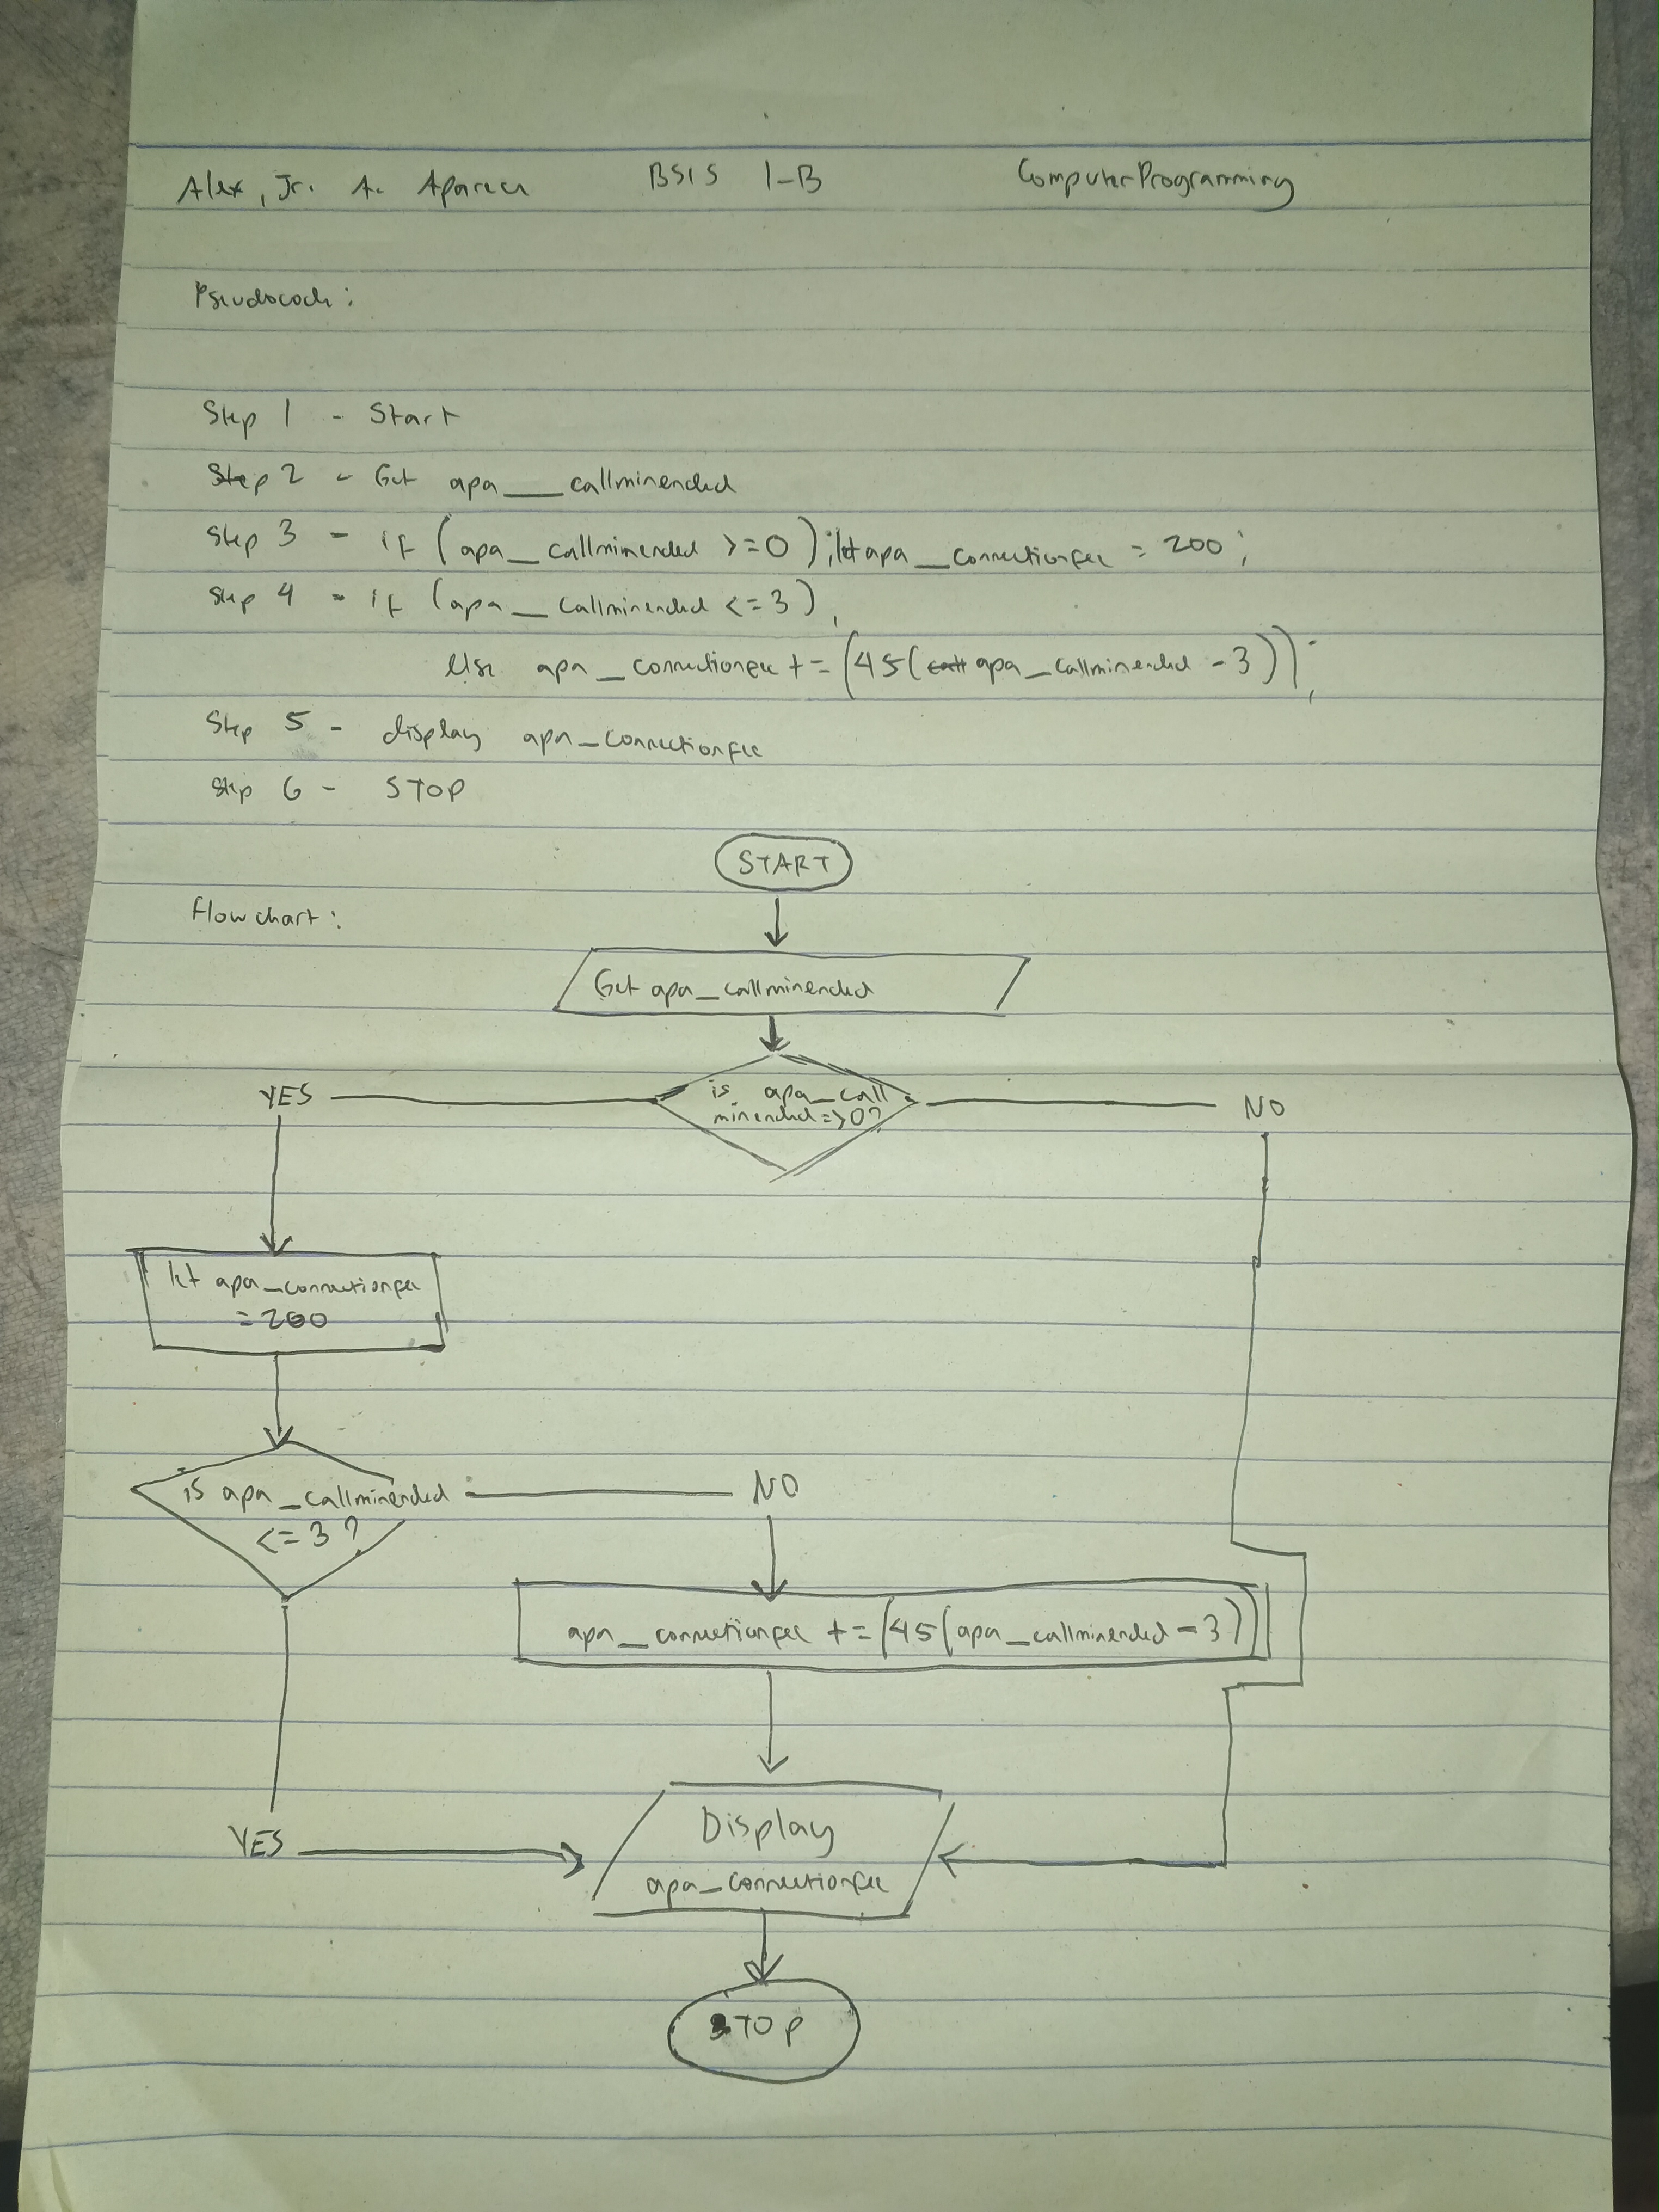 Alex, Jr. A. Aparece BSIS 1-B Computer Programming
Pseudocode:
Step 1 - Start
Step 2 - Get apa_callminended
Step 3 - if (apa_callminended >=0); let apa_connectionfee = 200;
Step 4 - if (apa_callminended <=3),
else apa_connectionfee += (45(apa_callminended -3));
Step 5 - display apa_connectionfee
Step 6 - STOP
START
Flowchart:
Get apa_callminended
YES
is apa_call
minended=>0?
NO
let apa_connectionfee
=200
is apa_callminended
<=3?
NO
apa_connectionfee += (45(apa_callminended -3))
YES
Display
apa_connectionfee
STOP